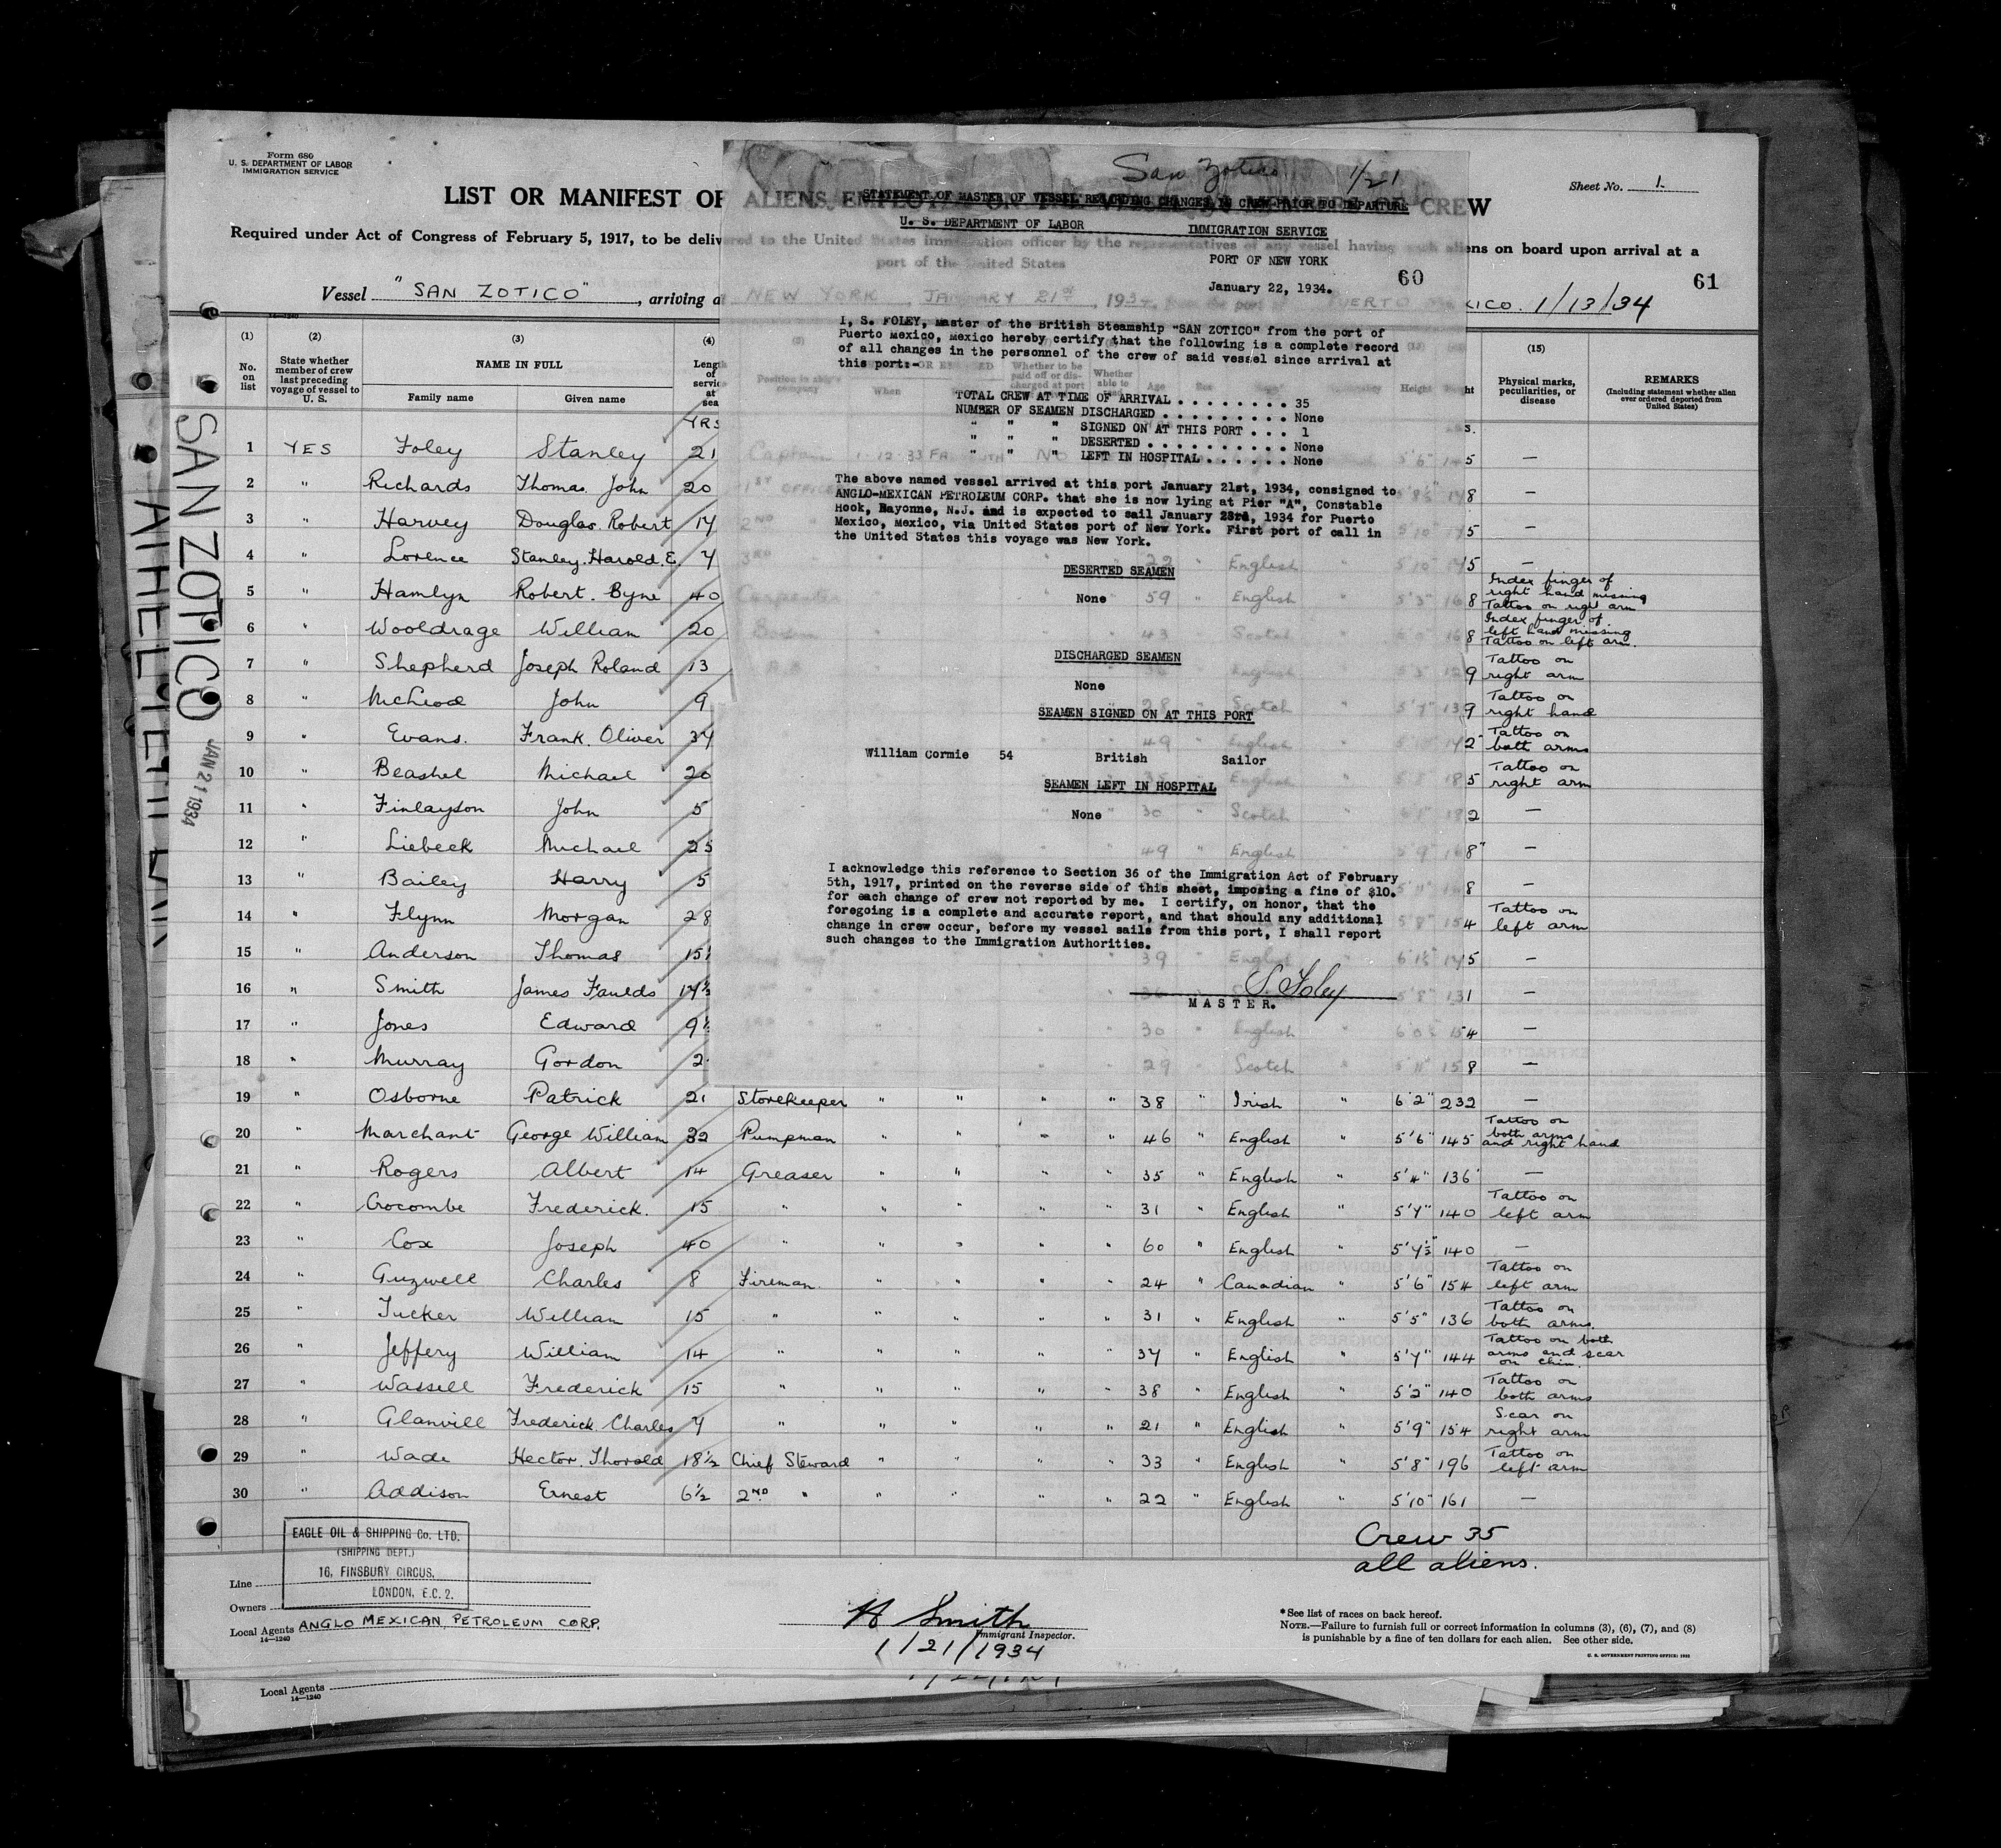 Form 680
U. S. DEPARTMENT OF LABOR
IMMIGRATION SERVICE
San Zotico 1/21
Sheet No. 1.
LIST OR MANIFEST OF ALIENS EMPLOYED ON THE CREW
STATEMENT OF MASTER OF VESSEL REGARDING CHANGES IN CREW PRIOR TO DEPARTURE
U. S. DEPARTMENT OF LABOR IMMIGRATION SERVICE
Required under Act of Congress of February 5, 1917, to be delivered to the United States immigration officer by the representatives of any vessel having such aliens on board upon arrival at a
port of the United States
PORT OF NEW YORK
60
61
January 22, 1934.
Vessel "SAN ZOTICO", arriving a NEW YORK, JANUARY 21st, 193 PUERTO XICO. 1/13/34
I, S. FOLEY, Master of the British Steamship "SAN ZOTICO" from the port of
Puerto Mexico, Mexico hereby certify that the following is a complete record
of all changes in the personnel of the crew of said vessel since arrival at
this port:-
TOTAL CREW AT TIME OF ARRIVAL . . . . . . . . 35
NUMBER OF SEAMEN DISCHARGED . . . . . . . . . None
" " " SIGNED ON AT THIS PORT . . . 1
" " " DESERTED . . . . . . . . . None
" " " LEFT IN HOSPITAL . . . . . . None
The above named vessel arrived at this port January 21st, 1934, consigned to
ANGLO-MEXICAN PETROLEUM CORP. that she is now lying at Pier "A", Constable
Hook, Bayonne, N.J. and is expected to sail January 23rd, 1934 for Puerto
Mexico, Mexico, via United States port of New York. First port of call in
the United States this voyage was New York.
DESERTED SEAMEN
None
DISCHARGED SEAMEN
None
SEAMEN SIGNED ON AT THIS PORT
William Cormie 54 British Sailor
SEAMEN LEFT IN HOSPITAL
None
I acknowledge this reference to Section 36 of the Immigration Act of February
5th, 1917, printed on the reverse side of this sheet, imposing a fine of $10.
for each change of crew not reported by me. I certify, on honor, that the
foregoing is a complete and accurate report, and that should any additional
change in crew occur, before my vessel sails from this port, I shall report
such changes to the Immigration Authorities.
S. Foley
MASTER.
(1) (2) (3) (4) (15)
No. on list
State whether member of crew last preceding voyage of vessel to U. S.
NAME IN FULL
Family name Given name
Length of service at sea
Position in ship's company
When
Whether to be paid off or discharged at port
Whether able to
Age Sex Height
Physical marks, peculiarities, or disease
REMARKS
(Including statement whether alien ever ordered deported from United States)
YRS
1 YES Foley Stanley 21 Captain 1-12-33 NO 5'6" 5 —
2 " Richards Thomas John 20 1ST OFFICER 8 —
3 " Harvey Douglas Robert 17 2ND 5 —
4 " Lorence Stanley Harold E. 7 3RD English 5'10" 5 —
5 " Hamlyn Robert. Byne 40 Carpenter 59 " English 5'5" 168 Index finger of right hand missing Tattoo on right arm
6 " Wooldrage William 20 43 Scotch 8 Index finger of left hand missing Tattoo on left arm.
7 " Shepherd Joseph Roland 13 A.B. English 9 Tattoo on right arm
8 " McLeod John 9 28 Scotch 5'7" 139 Tattoo on right hand
9 " Evans. Frank. Oliver 37 49 English 2 Tattoo on both arms
10 " Beashel Michael 20 5 Tattoo on right arm
11 " Finlayson John 5 30 " Scotch 2 —
12 " Liebeck Michael 25 49 " English 5'9" 168 —
13 " Bailey Harry 5 8 —
14 " Flynn Morgan 28 5'8" 154 Tattoo on left arm
15 " Anderson Thomas 15 39 English 5 —
16 " Smith James Faulds 17½ 5'8" 131 —
17 " Jones Edward 9 30 " English 154 —
18 " Murray Gordon 2 29 Scotch 5'11" 158 —
19 " Osborne Patrick 21 Storekeeper " " " " 38 " Irish " 6'2" 232 —
20 " Marchant George William 32 Pumpman " " " " 46 " English " 5'6" 145 Tattoo on both arms and right hand
21 " Rogers Albert 14 Greaser " " " " 35 " English " 5'4" 136 —
22 " Crocombe Frederick. 15 " " " " " 31 " English " 5'7" 140 Tattoo on left arm
23 " Cox Joseph 40 " " " " " 60 " English " 5'7½" 140 —
24 " Guzwell Charles 8 Fireman. " " " " 24 " Canadian " 5'6" 154 Tattoo on left arm
25 " Tucker William 15 " " " " " 31 " English " 5'5" 136 Tattoo on both arms.
26 " Jeffery William 14 " " " " " 37 " English " 5'7" 144 Tattoo on both arms and scar on chin.
27 " Wassell Frederick 15 " " " " " 38 " English " 5'2" 140 Tattoo on both arms
28 " Glanvill Frederick Charles 7 " " " " " 21 " English " 5'9" 154 Scar on right arm
29 " Wade Hector. Thorold 18½ Chief Steward " " " " 33 " English " 5'8" 196 Tattoo on left arm
30 " Addison Ernest 6½ 2ND " " " " " 22 " English " 5'10" 161 —
SAN ZOTICO
JAN 21 1934
Crew 35
all aliens.
EAGLE OIL & SHIPPING Co. LTD.
(SHIPPING DEPT.)
16, FINSBURY CIRCUS,
LONDON, E.C.2.
Line
Owners
Local Agents ANGLO MEXICAN PETROLEUM CORP.
14—1240
H Smith
Immigrant Inspector.
1/21/1934
*See list of races on back hereof.
NOTE.—Failure to furnish full or correct information in columns (3), (6), (7), and (8)
is punishable by a fine of ten dollars for each alien. See other side.
U. S. GOVERNMENT PRINTING OFFICE: 1932
Local Agents
14—1240